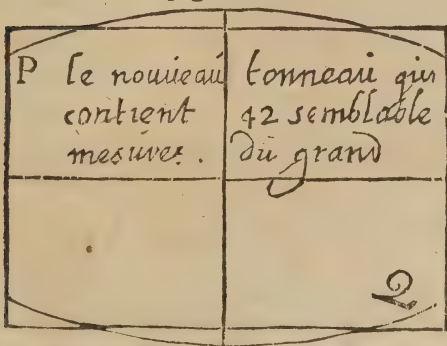 P le nouueau tonneau qui
contient 42 semblable
mesures. du grand
Q